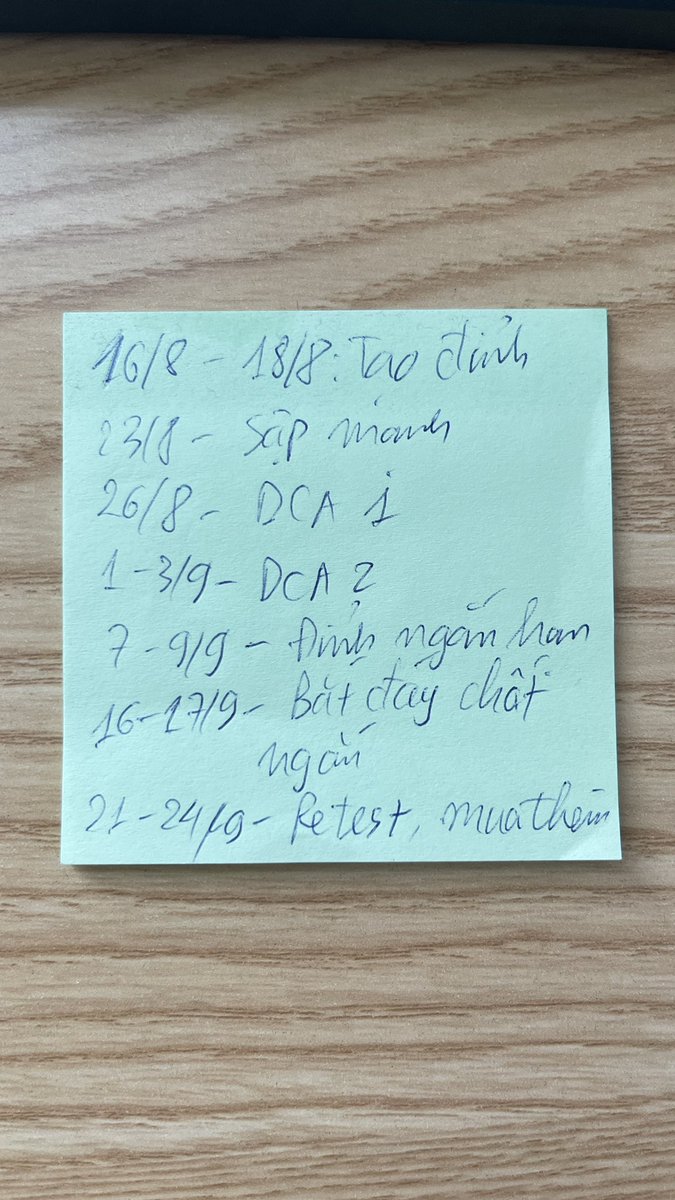 16/8 - 18/8: Tạo đỉnh
23/8 - Sập mạnh
26/8 - DCA 1
1-3/9 - DCA 2
7-9/9 - Đỉnh ngắn hạn
16-17/9 - Bắt đáy chốt
ngắn
21-24/9 - Retest, mua thêm